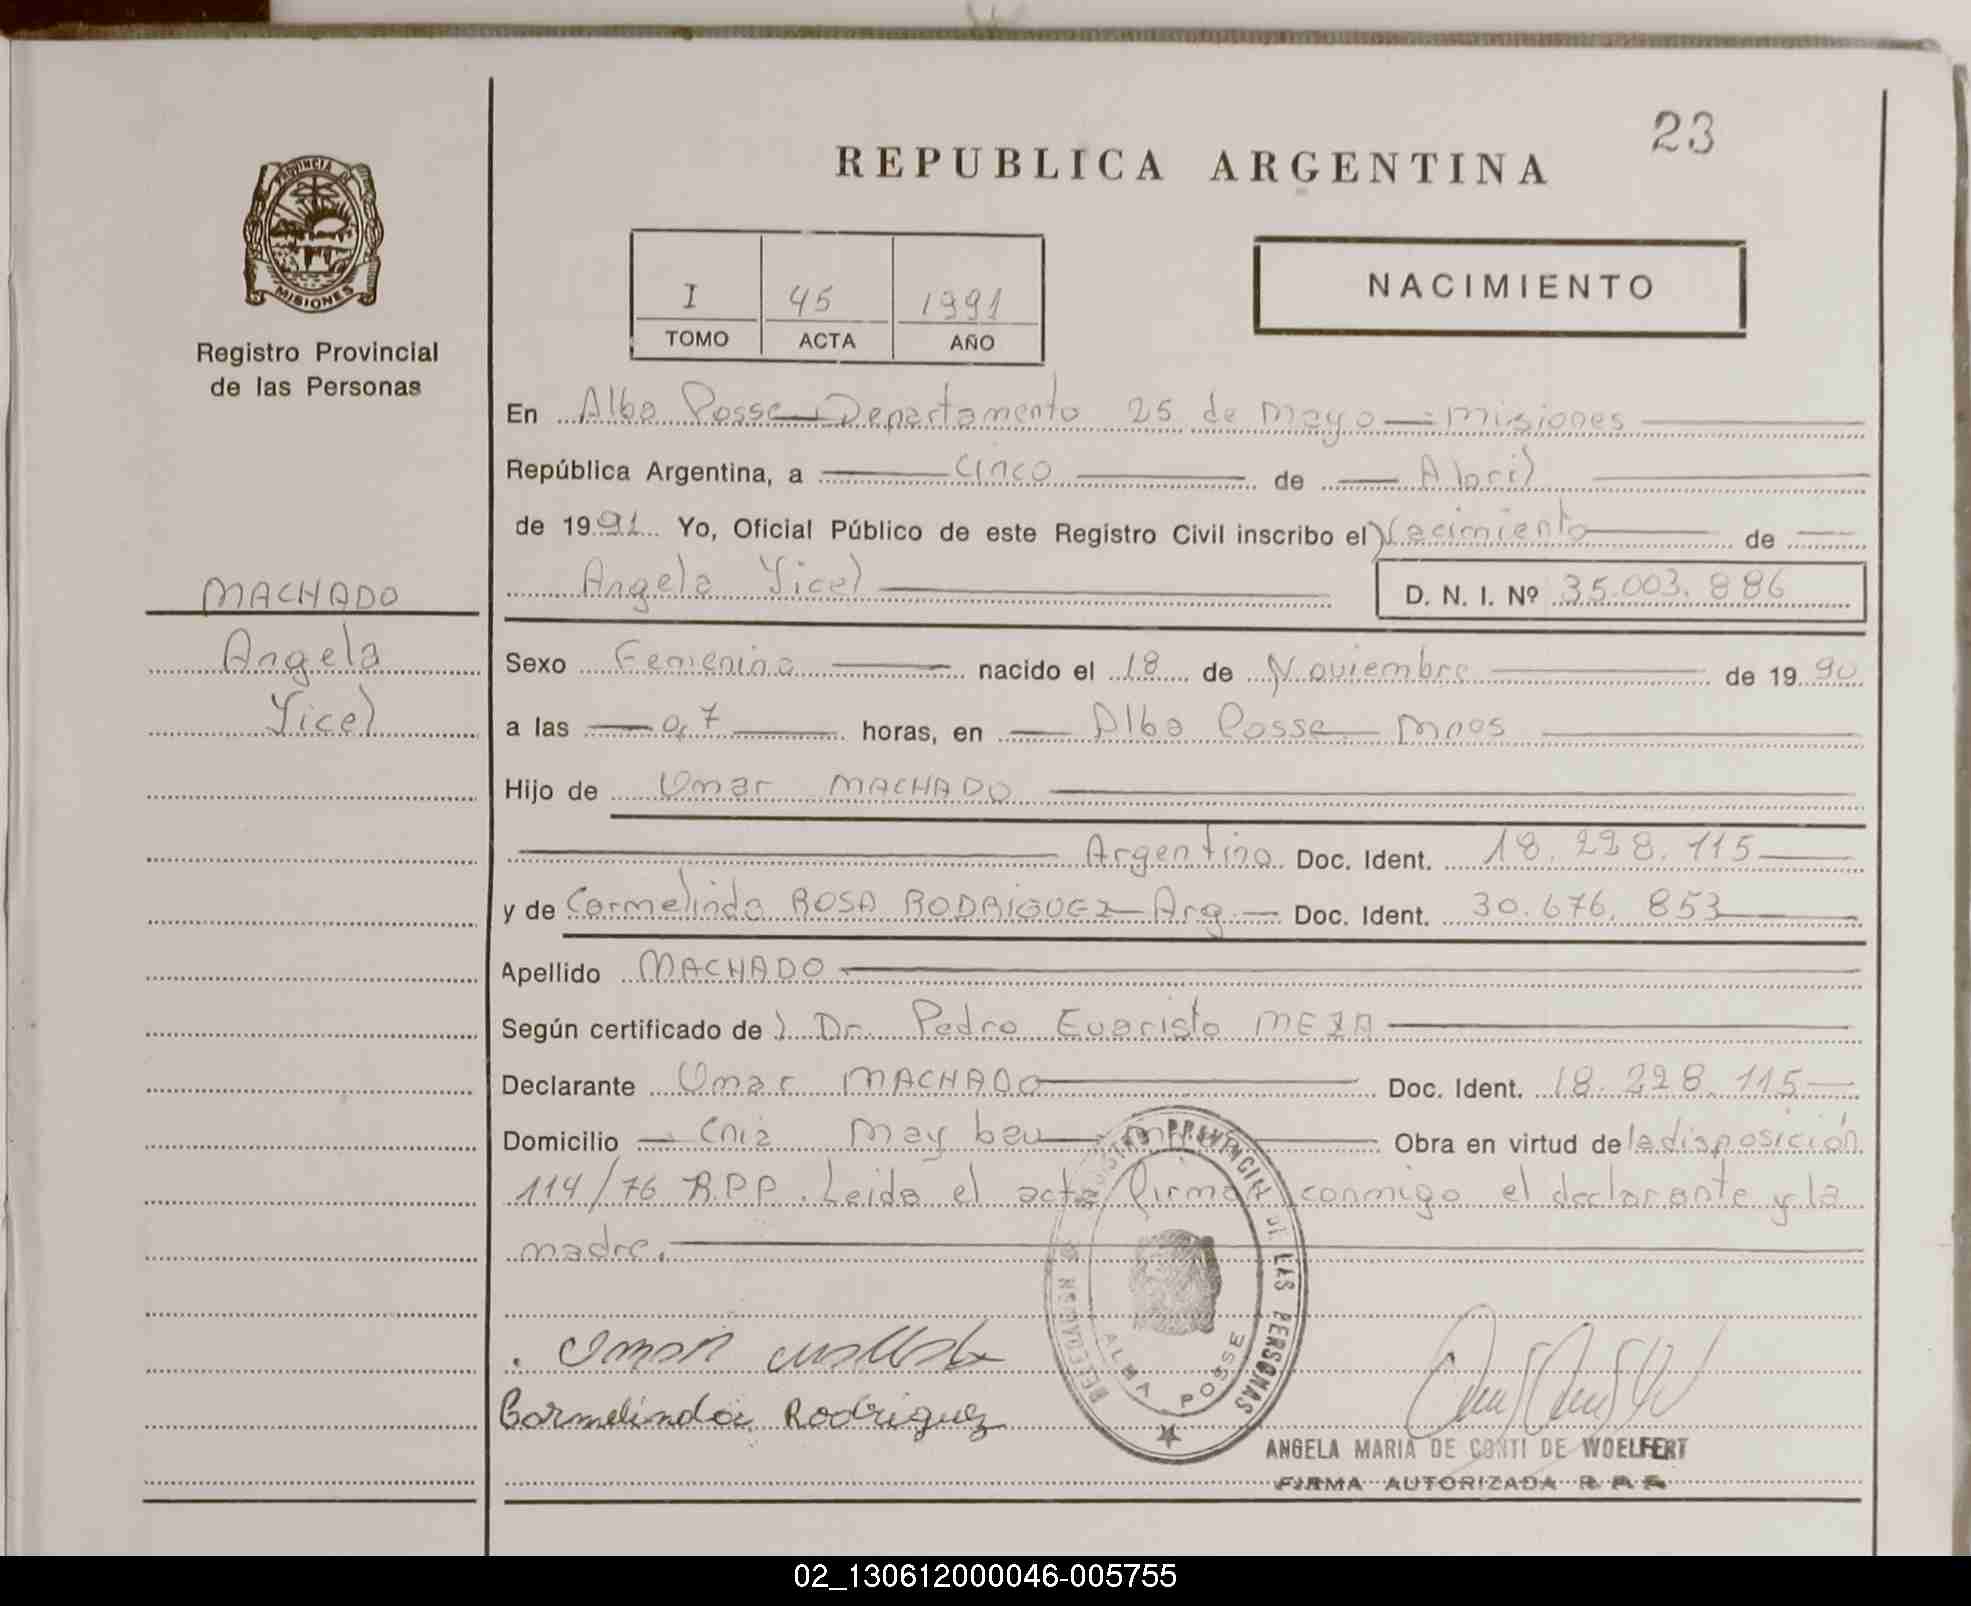 23
REPUBLICA ARGENTINA
PROVINCIA DE
MISIONES
Registro Provincial
de las Personas
I 45 1991
TOMO ACTA AÑO
NACIMIENTO
En Alba Posse - Departamento 25 de Mayo - Misiones
República Argentina, a cinco de Abril
de 1991 Yo, Oficial Público de este Registro Civil inscribo el Nacimiento de
Angela Yicel D. N. I. Nº 35.003.886
MACHADO
Angela
Yicel
Sexo Femenino nacido el 18 de Noviembre de 1990
a las 07 horas, en Alba Posse Mnes
Hijo de Omar MACHADO
Argentino Doc. Ident. 18.228.115
y de Carmelinda ROSA RODRIGUEZ - Arg. Doc. Ident. 30.676.853
Apellido MACHADO
Según certificado de Dr. Pedro Evaristo MEZA
Declarante Omar MACHADO Doc. Ident. 18.228.115
Domicilio Cnia May beu Obra en virtud de la disposición
114/76 R.P.P. Leida el acta firman conmigo el declarante y la
madre.
REGISTRO PROVINCIAL DE LAS PERSONAS
ALBA POSSE
Omar
Carmelinda Rodriguez
ANGELA MARIA DE CONTI DE WOELFERT
FIRMA AUTORIZADA R P P
02_130612000046-005755